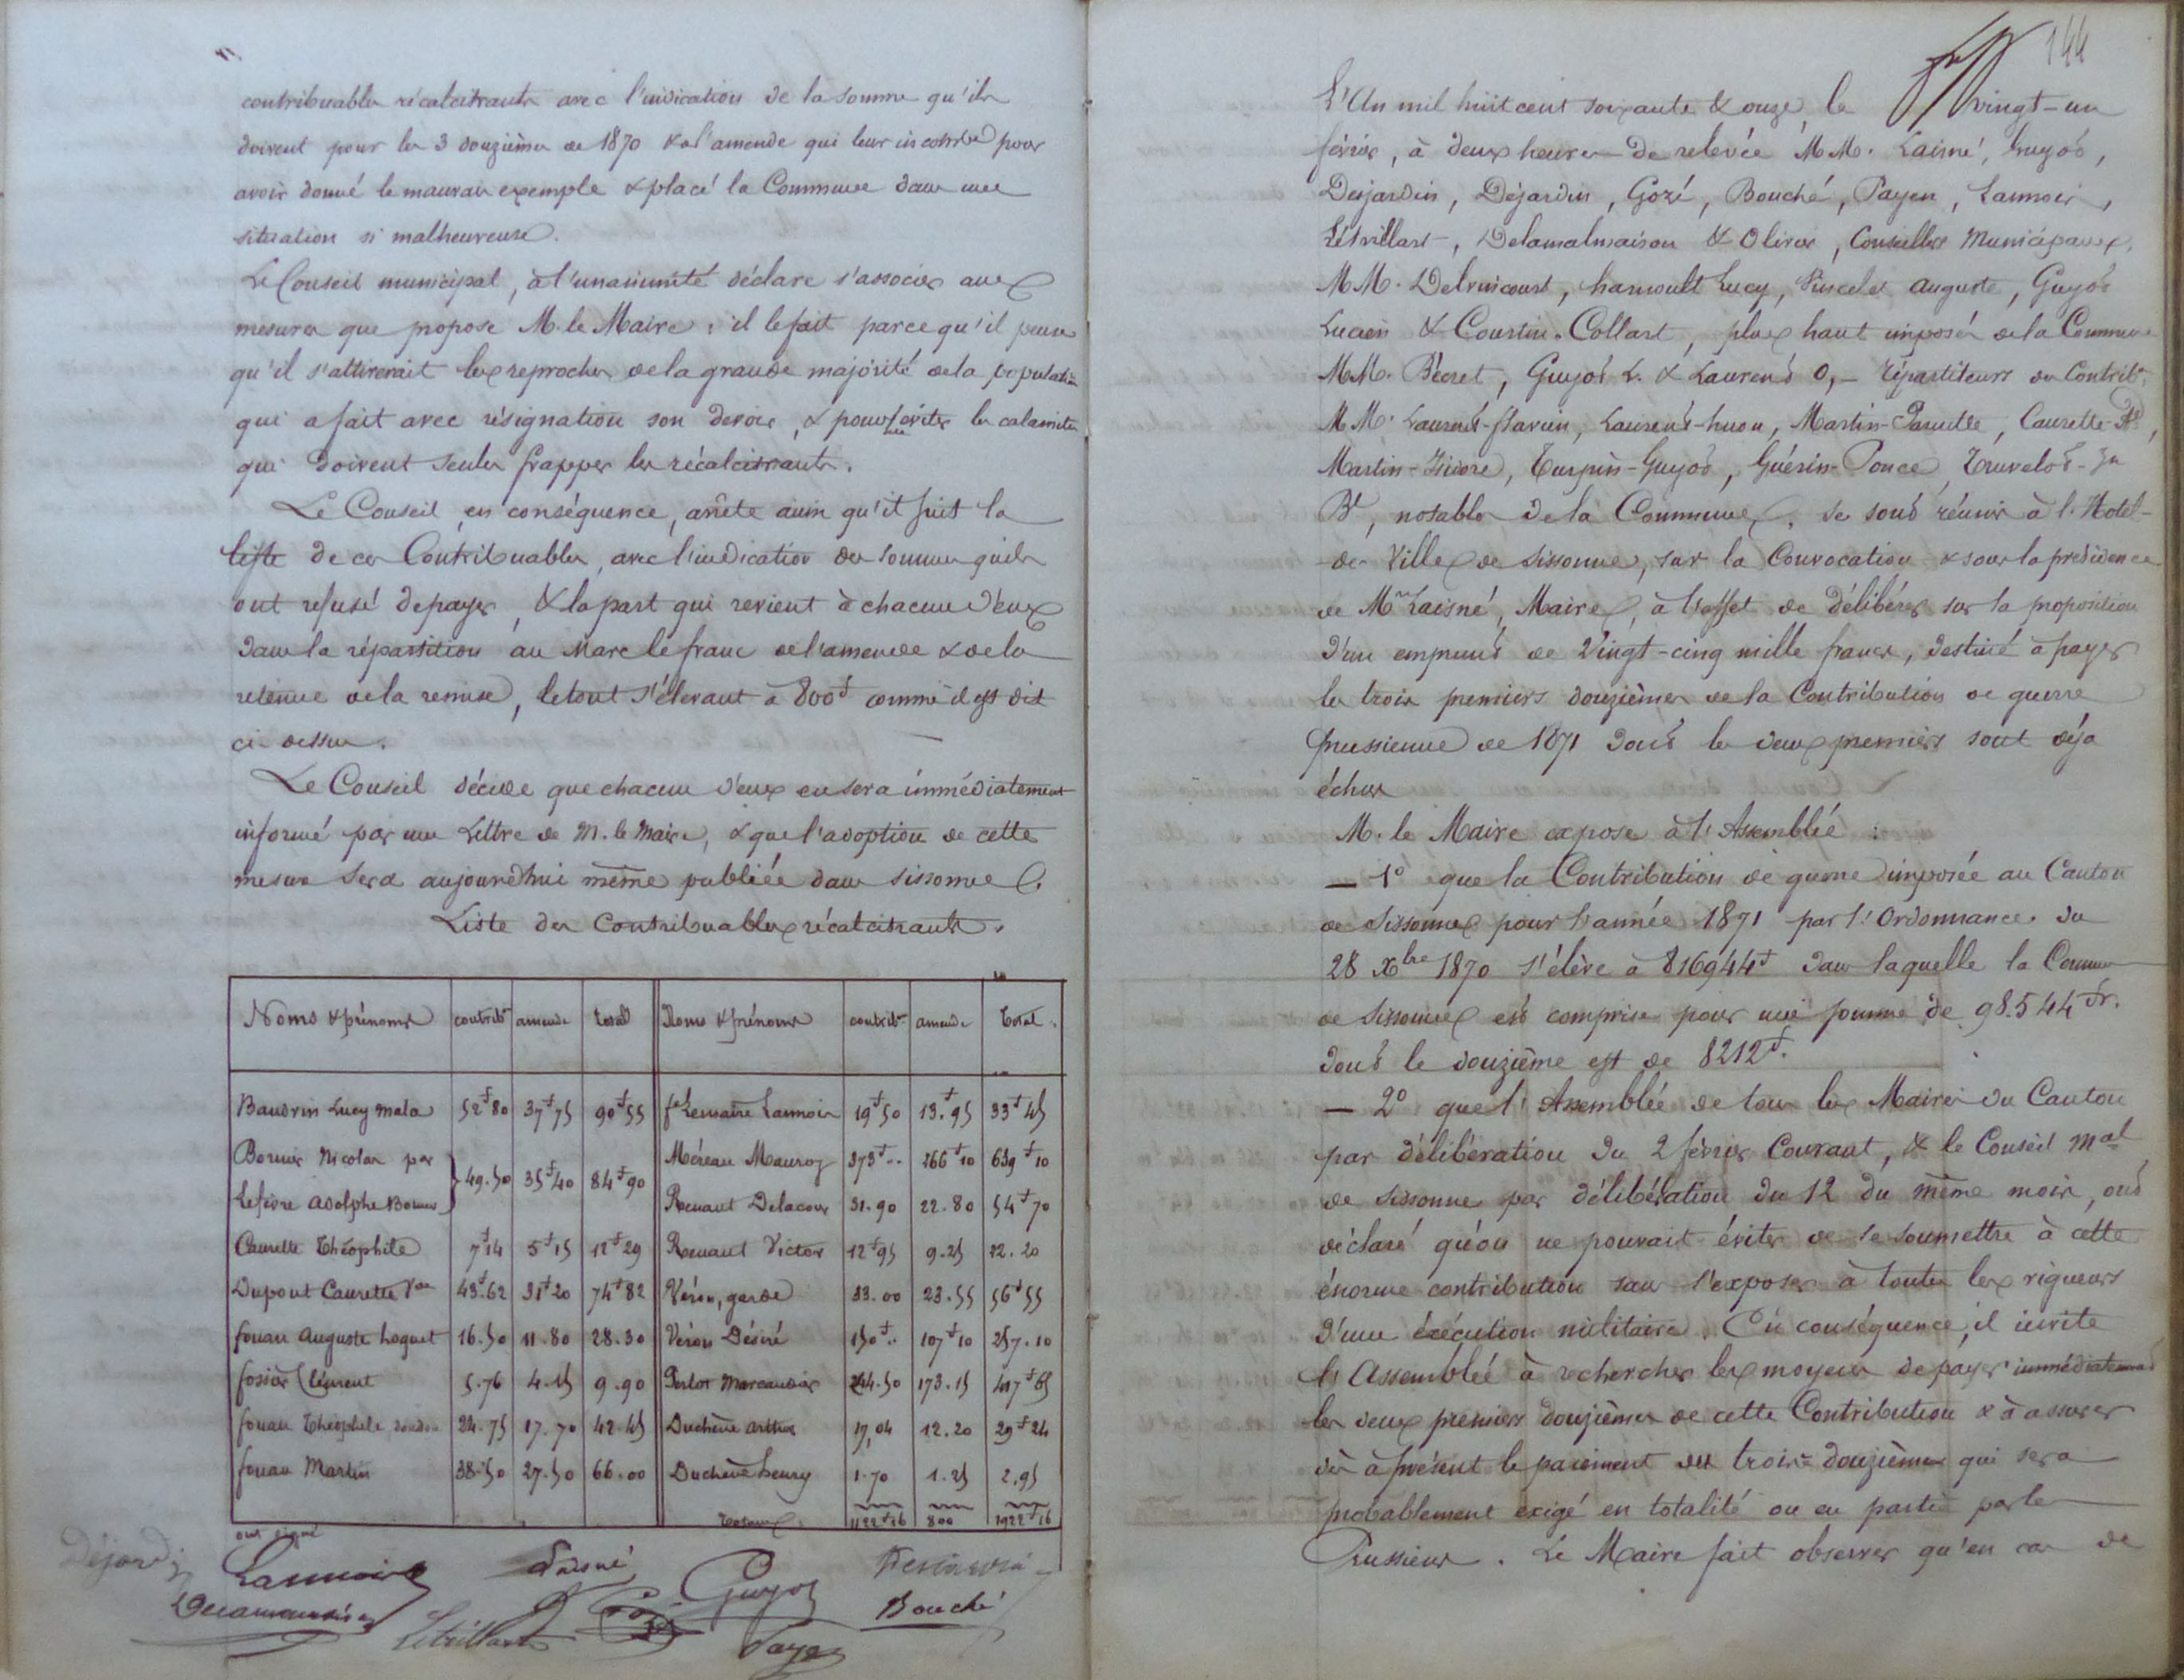 contribuables récalcitrants avec l'indication de la somme qu'ils
doivent pour les 3 douzièmes de 1870 & à l'amende qui leur incombe pour
avoir donné le mauvais exemple & placé la Commune dans une
situation si malheureuse.
Le Conseil municipal, à l'unanimité déclare s'associer aux
mesures que propose M. le Maire ; il le fait parce qu'il pense
qu'il s'attirerait les reproches de la grande majorité de la population
qui a fait avec résignation son devoir, & pour éviter les calamités
qui doivent seules frapper les récalcitrants.
Le Conseil, en conséquence, arrête ainsi qu'il suit la
liste de ces Contribuables, avec l'indication des sommes qu'ils
ont refusé de payer, & la part qui revient à chacun d'eux
dans la répartition au Marc le franc de l'amende & de la
retenue de la remise, le tout s'élevant à 800f comme il est dit
ci-dessus.
Le Conseil décide que chacun d'eux en sera immédiatement
informé par une Lettre de M. le Maire, & que l'adoption de cette
mesure sera aujourd'hui même publiée dans Sissonne.
Liste des Contribuables récalcitrants.
Noms & prénoms contribon amende total Noms & prénoms contribon amende Total.
Baudrin Lucy Mala 52f80 37f75 90f55 fe Lemaire Lannois 19f50 13.f95 33f45
Bornier Nicolas par Méreau Mauroy 373f.. 266f10 639f10
49.50 35f40 84f90
Lefèvre Adolphe Bornier Renaut Delacour 31.90 22.80 54f70
Caurette Théophile 7f14 5f15 12f29 Renaut Victor 12f95 9.25 22.20
Dupont Caurette Vve 43f.62 31f20 74f82 Véron, garde 33.00 23.55 56f55
fouan Auguste hoguet 16.50 11.80 28.30 Véron Désiré 150f.. 107f10 257.10
fossier Clément 5.76 4.15 9.90 Perlot Marcaudier 244.50 173.15 417f65
fouan Théophile 24.75 17.70 42.45 Duchêne Arthur 17,04 12.20 29f24
fouan Martin 38.50 27.50 66.00 Duchêne henry 1.70 1.25 2.95
Totaux. 1122f16 800 1922f16
ont signé
Déjardin Lannois Laisné Guyot
Delamalmaison Létrillart Gozé Payen Bouché
144
L'An mil huit cent soixante & onze, le vingt-un
février, à deux heures de relevée MM. Laisné, Guyot,
Desjardin, Déjardin, Gozé, Bouché, Payen, Lannois,
Létrillart, Delamalmaison & Olivier, Conseillers Municipaux,
MM. Delvincourt, hamoult Lucy, Vincelet Auguste, Guyot
Lucien & Courtin-Collart, plus haut imposés de la Commune
MM. Bécret, Guyot L. & Laurent O, – répartiteurs des Contribons
MM. Laurent-flavien, Laurent-huon, Martin-Parmille, Caurette-
Martin-Isidore, Turpin-Guyot, Guérin-Ponce, Truvelot-
Bt, notables de la Commune, se sont réunis à l'Hotel-
de-Ville de Sissonne, sur la Convocation & sous la présidence
de Mr Laisné, Maire, à l'effet de délibérer sur la proposition
d'un emprunt de Vingt-cinq mille francs, destiné à payer
les trois premiers douzièmes de la Contribution de guerre
prussienne de 1871 dont les deux premiers sont déjà
échus
M. le Maire expose à l'Assemblée :
– 1° que la Contribution de guerre imposée au Canton
de Sissonne pour l'année 1871 par l'Ordonnance du
28 Xbre 1870 s'élève à 816944f dans laquelle la Commune
de Sissonne est comprise pour une somme de 98.544fr.
dont le douzième est de 8212f.
– 2° que l'Assemblée de tous les Maires du Canton
par délibération du 2 février Courant, & le Conseil Mal
de Sissonne par délibération du 12 du même mois, ont
déclaré qu'on ne pouvait éviter de se soumettre à cette
énorme contribution sans s'exposer à toutes les rigueurs
d'une exécution militaire. En conséquence, il invite
l'Assemblée à rechercher les moyens de payer immédiatement
les deux premiers douzièmes de cette Contribution & à assurer
dès à présent le paiement du trois.e douzième qui sera
probablement exigé en totalité ou en partie par les
Prussiens. Le Maire fait observer qu'en cas de